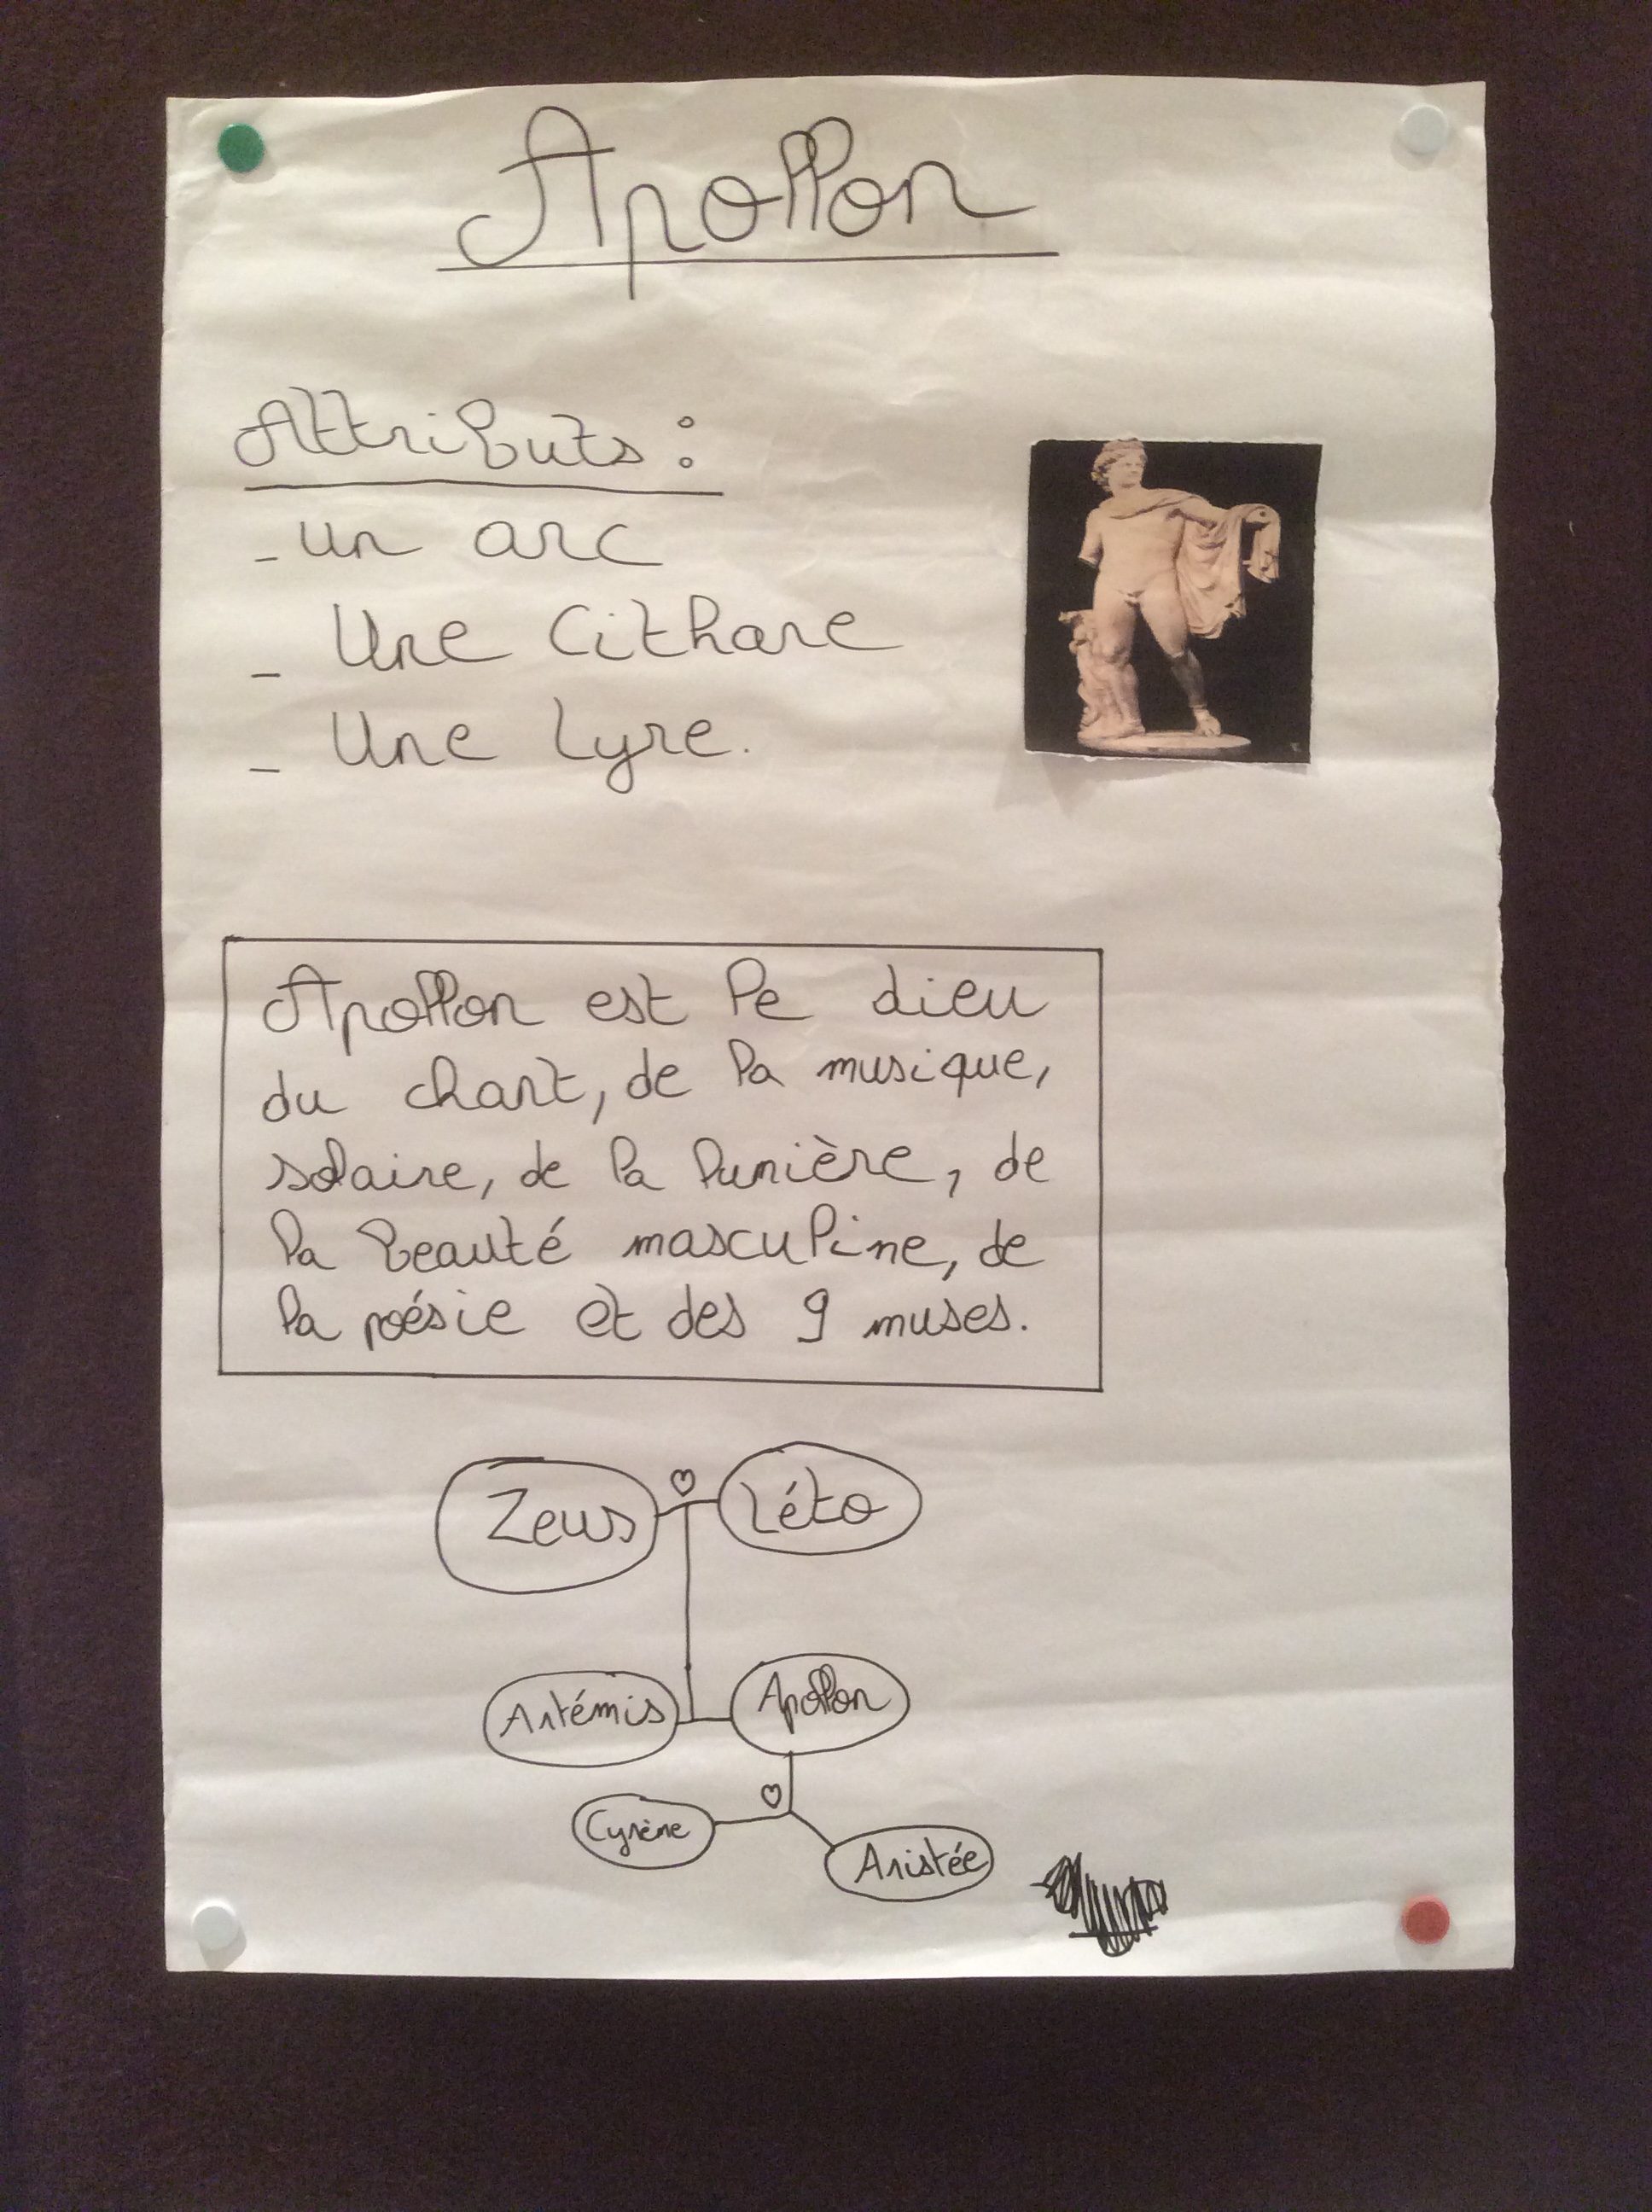 Apollon
Attributs :
- un arc
- Une Cithare
- Une Lyre.
Apollon est le dieu
du chant, de la musique,
solaire, de la lumière, de
la beauté masculine, de
la poésie et des 9 muses.
Zeus Léto
Artémis Apollon
Cyrène
Aristée